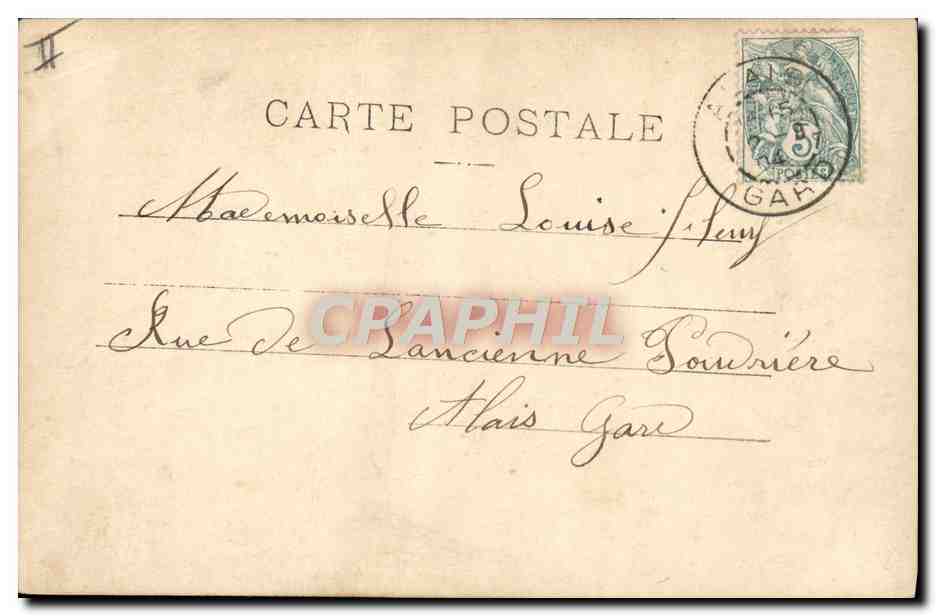 II
CARTE POSTALE
ALAIS
GARD
5
POSTES
Mademoiselle Louise
CRAPHIL
Rue de Lancienne Poudrière
Alais Gare